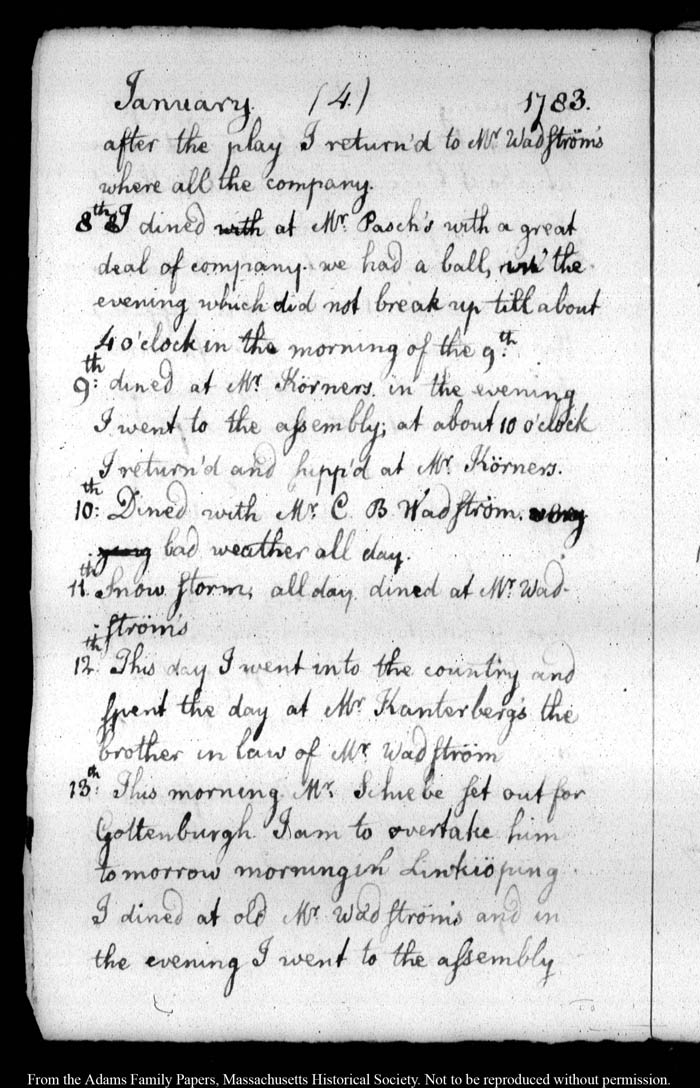 January. (4.) 1783.
after the play I return'd to Mr. Wadström's
where all the company.
8th I dined with at Mr. Pasch's with a great
deal of company. we had a ball, in the
evening which did not break up till about
4 o'clock in the morning of the 9th.
9th: dined at Mr. Körners. in the evening
I went to the assembly; at about 10 o'clock
I return'd and supp'd at Mr. Körners.
10th: Dined with Mr. C. B. Wadström. very
bad weather all day.
11th. Snow storm, all day. dined at Mr. Wad-
-ström's
12th: This day I went into the country and
spent the day at Mr. Kanterberg's the
brother in law of Mr. Wadström
13th: This morning Mr. Schiebe set out for
Gottenburgh I am to overtake him
tomorrow morning in Linkiöping
I dined at old Mr. Wadström's and in
the evening I went to the assembly
From the Adams Family Papers, Massachusetts Historical Society. Not to be reproduced without permission.